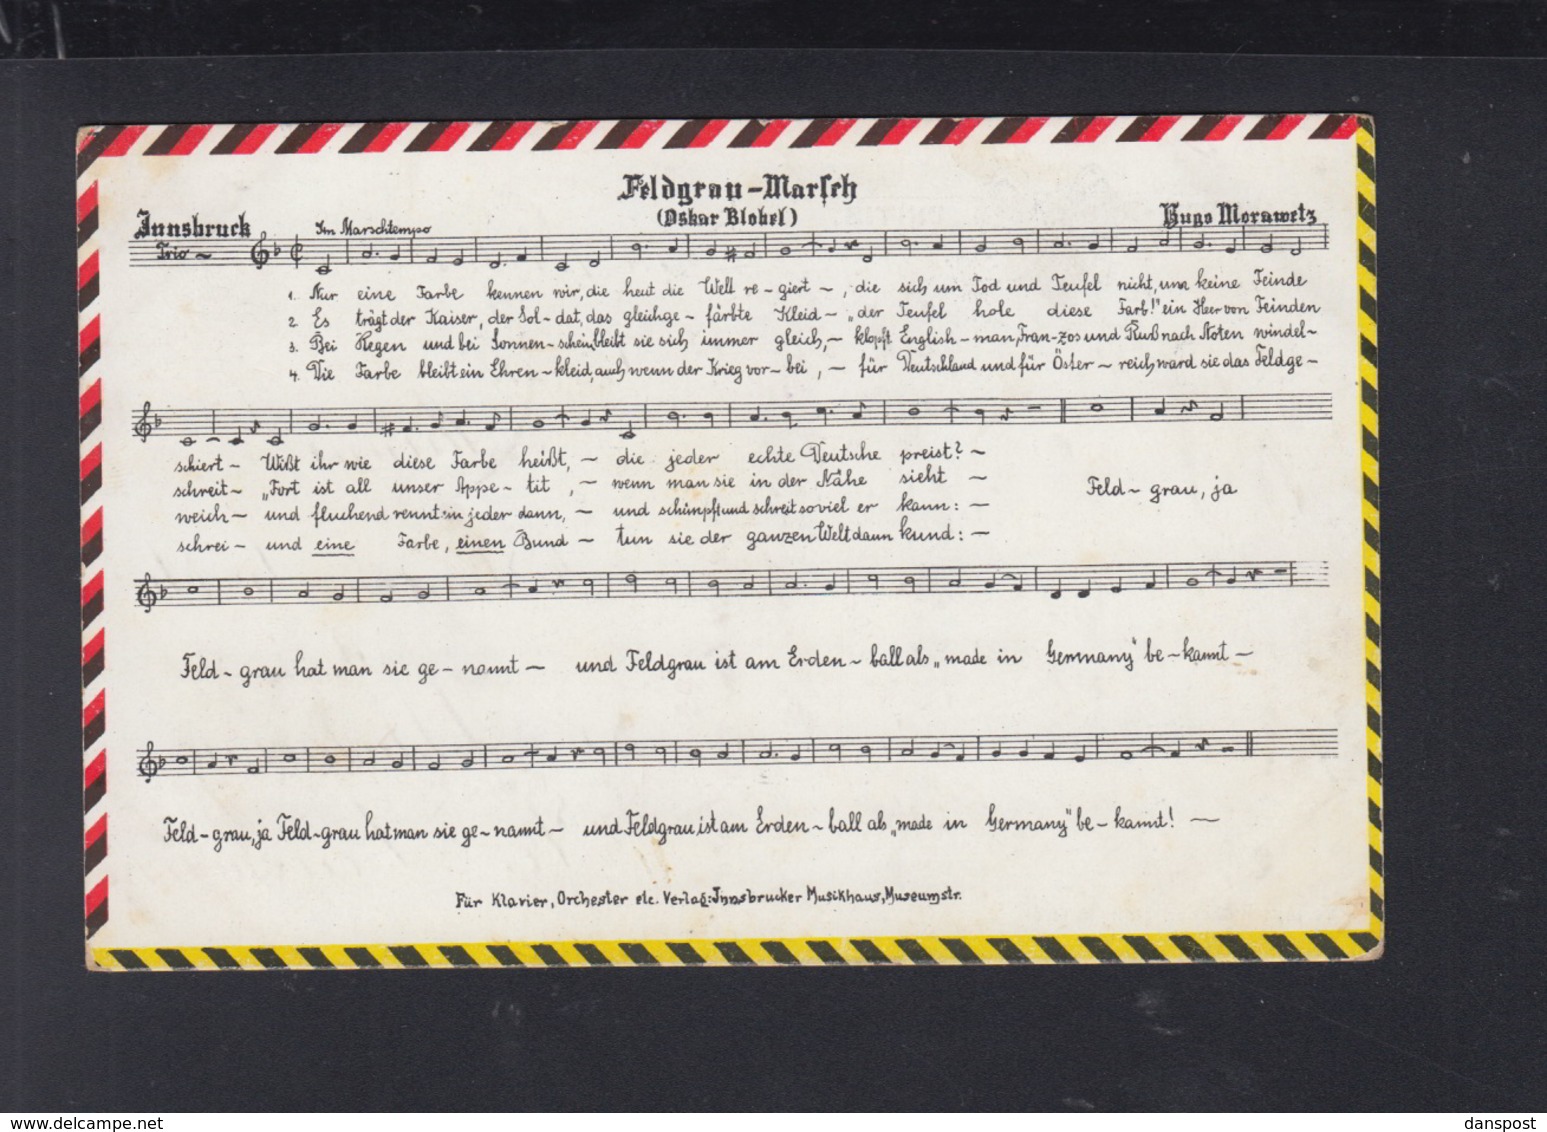 Feldgrau-Marsch
(Oskar Blobel)
Innsbruck
Hugo Morawetz
Im Marschtempo
Trio ~
1. Nur eine Farbe kennen wir, die heut die Welt re-giert -, die sich um Tod und Teufel nicht, um keine Feinde
2. Es trägt der Kaiser, der Sol-dat, das gleichge-färbte Kleid - „der Teufel hole diese Farb!" ein Heer von Feinden
3. Bei Regen und bei Sonnen-schein, bleibt sie sich immer gleich, - klopft English-man, Fran-zos und Ruß nach Noten windel-
4. Die Farbe bleibt ein Ehren-kleid, auch wenn der Krieg vor-bei, - für Deutschland und für Öster-reich ward sie das Feldge-
schiert - Wißt ihr wie diese Farbe heißt, - die jeder echte Deutsche preist? -
schreit - „Fort ist all unser Appe-tit, - wenn man sie in der Nähe sieht -
Feld-grau, ja
weich - und fluchend rennt ein jeder dann, - und schimpft und schreit soviel er kann: -
schrei - und eine Farbe, einen Bund - tun sie der ganzen Welt dann kund: -
Feld-grau hat man sie ge-nannt - und Feldgrau ist am Erden-ball als „made in Germany" be-kannt -
Feld-grau, ja Feld-grau hat man sie ge-nannt - und Feldgrau, ist am Erden-ball als „made in Germany" be-kannt! -
Für Klavier, Orchester etc. Verlag: Innsbrucker Musikhaus, Museumstr.
delcampe.net
danspost